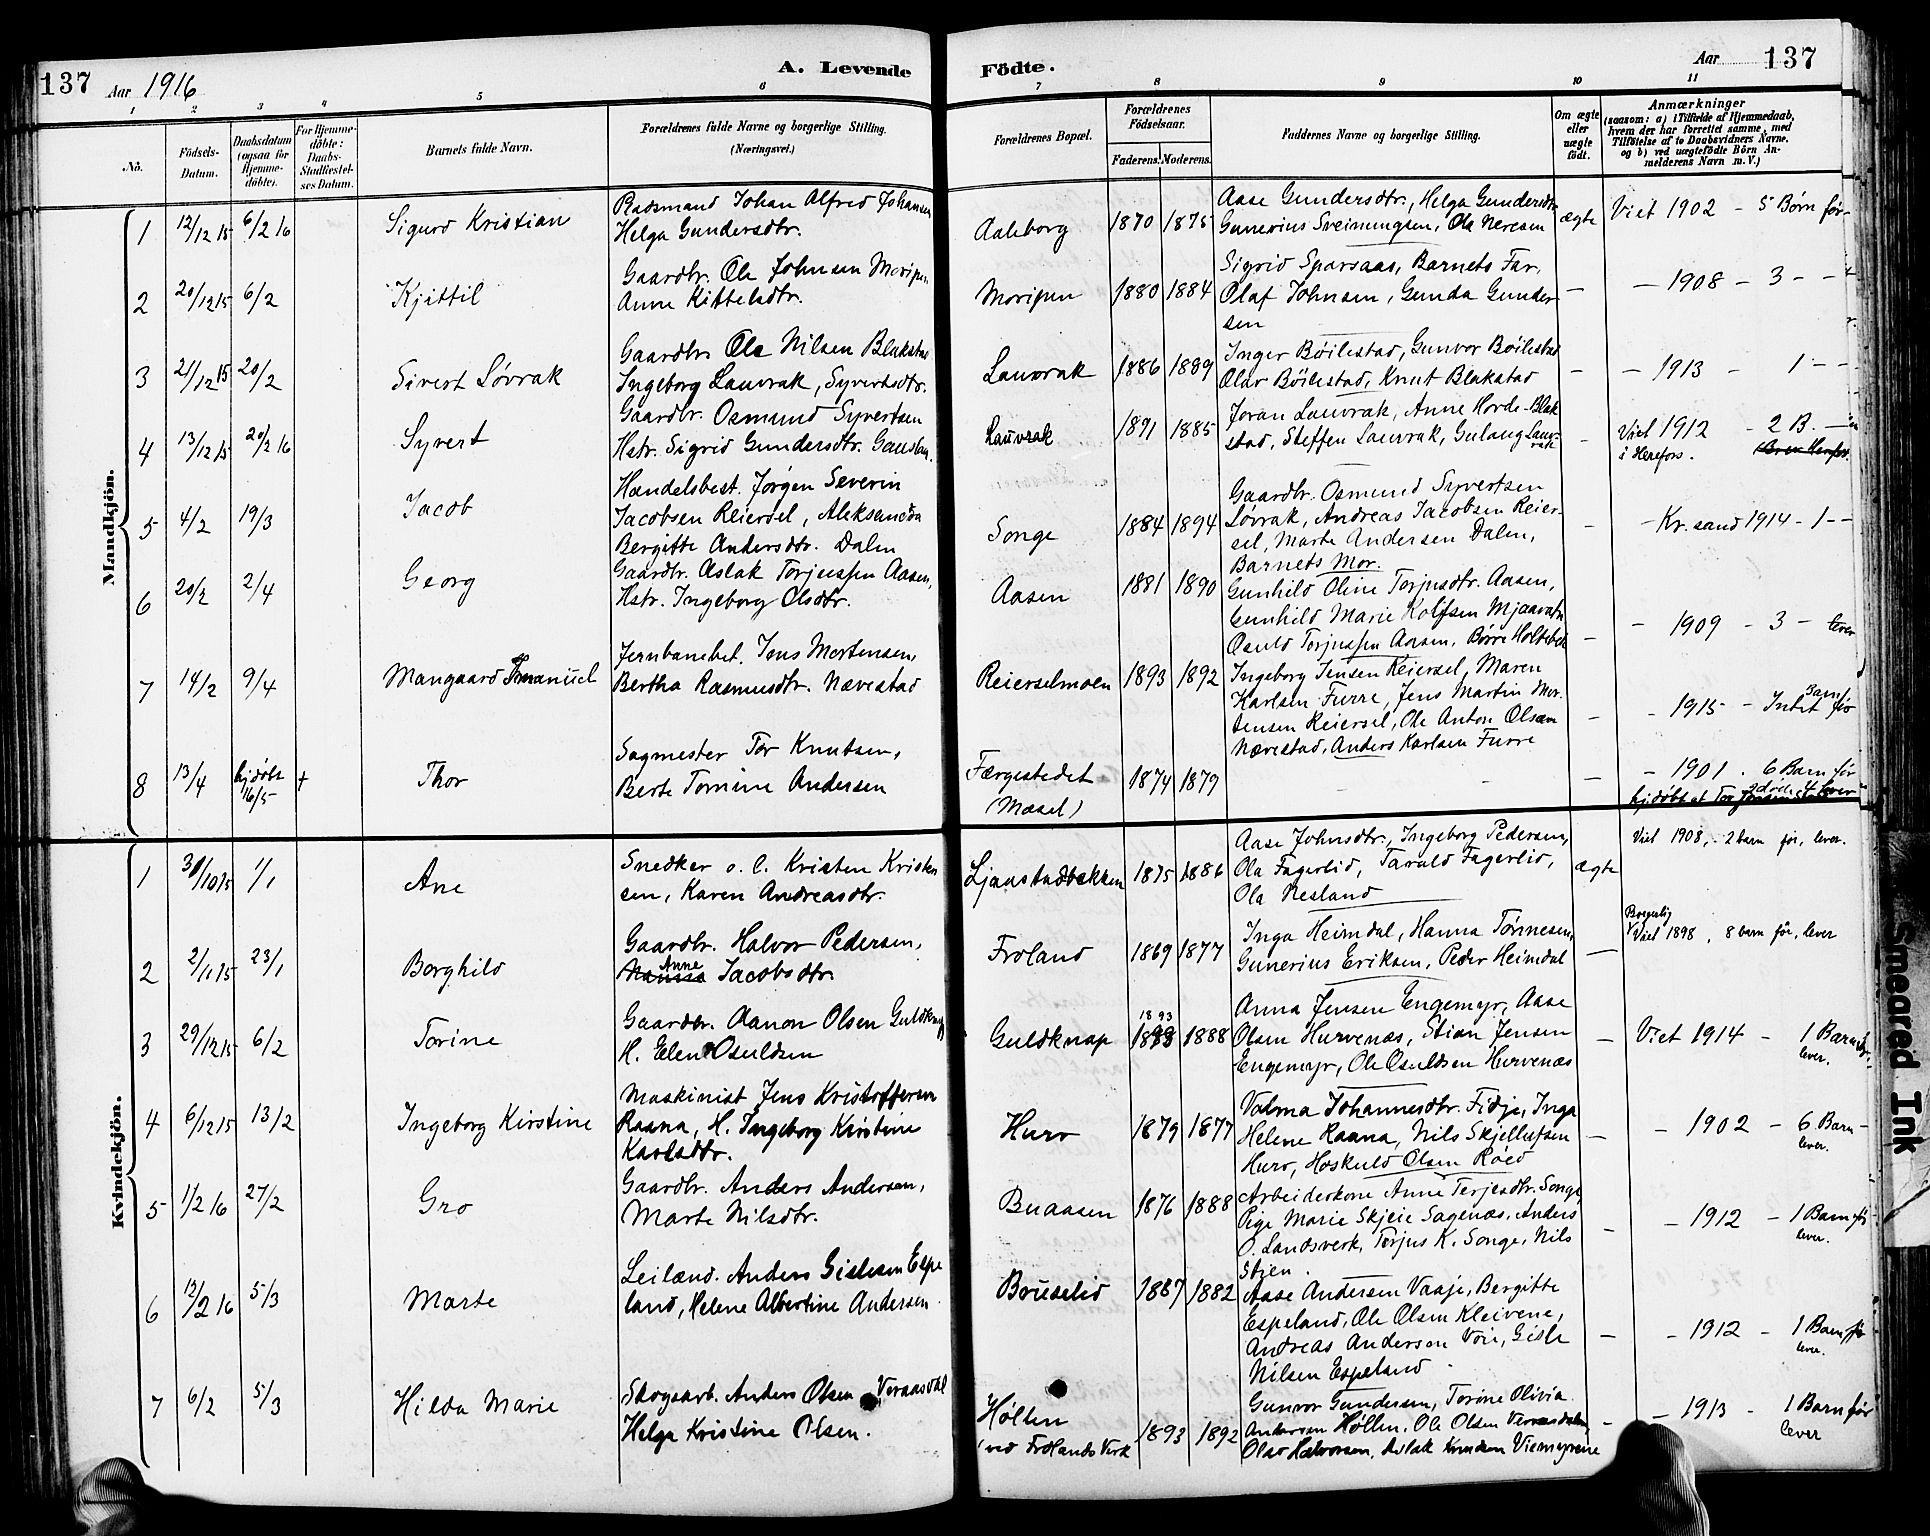 137 Aar 1916 A. Levende Födte. Aar 137
1 2 3 4 5 6 7 8 9 10 11
No.
Födsels-Datum.
Daabsdatum (ogsaa for Hjemme-döbte).
For Hjemme-döbte: Daabs-Stadfæstel-ses Datum.
Barnets fulde Navn.
Forældrenes fulde Navne og borgerlige Stilling.
(Næringsvei.)
Forældrenes Bopæl.
Forældrenes Födselsaar.
Faderens. Moderens.
Faddernes Navne og borgerlige Stilling.
Om ægte eller uægte födt.
Anmærkninger
(saasom: a) i Tilfælde af Hjemmedaab, hvem der har forrettet samme, med Tilföielse af to Daabsvidners Navne, og b) ved uægtefödte Börn An-melderens Navn m. V.)
Mandkjön.
1 12/12 15 6/2 16 Sigurd Kristian
Johan Alfred Johansen
Helga Gundersdtr.
Aaleborg 1870 1875
Aase Gundersdtr., Helga Gundersdtr.
Gunerius Sveinungsen, Ola Neresen
ægte Viet 1902 – 5 Børn før
2 20/12 15 6/2 Kjittil
Gaardbr. Ole Johnsen Moripen
Anne Kittelsdtr.
Moripen 1880 1884
Sigrid Sparsaas, Barnets Far,
Olaf Johnsen, Gunda Gunder-
sen
– – 1908 – 3 – –
3 21/12 15 20/2 Sivert Løvrak
Gaardbr Ole Nilsen Blakstad
Ingeborg Lauvrak, Syvertsdtr.
Lauvrak 1886 1889
Inger Bøilestad, Gunvor Bøilestad
Olav Bøilestad, Knut Blakstad
– – 1913 – 1 – –
4 13/12 15 20/2 16 Syvert
Gaardbr. Osmund Syvertsen
Hstr. Sigrid Gundersdtr.
Lauvrak 1891 1885
Joran Lauvrak, Anne Horde-Blak-
stad, Steffen Lauvrak, Gulaug Lauv-
rak
– Viet 1912 – 2 B. –
i Herefos.
5 4/2 19/3 Jacob
Handelsbest. Jørgen Severin
Jacobsen Reiersel, Aleksandra
Bergitte Andersdtr. Dalen
Songe 1884 1894
Gaardbr. Osmund Syvertsen
Løvrak, Andreas Jacobsen Reier-
sel, Marte Andersen Dalen,
Barnets Mor.
– – Kr.sand 1914 – 1 – –
6 20/2 2/4 Georg
Gaardbr. Aslak Torjussen Aasen,
Hstr. Ingeborg Olsdtr.
Aasen 1881 1890
Gunhild Oline Torjusdtr. Aasen,
Gunhild Marie Rolfsen Mjaavatn
Osuld Torjussen Aasen, Børre Holtebek
– – 1909 – 3 – lever
7 14/2 9/4 Mangaard Emanuel
Jernbanebet. Jens Mortensen,
Bertha Rasmusdtr. Nævestad
Reierselmoen 1893 1892
Ingeborg Jensen Reiersel, Maren
Karlsen Furre, Jens Martin Mor-
tensen Reiersel, Ole Anton Olsen
Nævestad, Anders Karlsen Furre
– – 1915 – Intet Barn før
8 13/4 hjdøbt 16/5 + Thor
Sagmester Tor Knutsen,
Berte Tomine Andersen
Færgestedet
(Mæsel) 1874 1879
– – – 1901 . 6 Barn før
2 døde 4 lever
Kvindekjön.
1 30/10 15 1/1 Ane
Snedker o. l. Kristen Kristen
sen, Karen Andreasdtr.
Ljøustadbakken 1875 1886
Aase Johnsdtr., Ingeborg Pedersen,
Ola Fagerlid, Tarald Fagerlid,
Ola Nesland
ægte Viet 1908, – 2 barn før, lever.
2 2/11 15 23/1 Borghild
Gaardbr. Halvor Pedersen,
Anne Jacobsdtr.
Froland 1869 1877
Inga Heimdal, Hanna Tørnesen,
Gunerius Eriksen, Peder Heimdal
– Borgerlig
Viet 1898, 8 barn før, lever
3 29/12 15 6/2 Torine
Gaardbr. Aanon Olsen Guldknap
H. Elen Osuldsen
Guldknap 1893 1888
Anna Jensen Engemyr, Aase
Olsen Hurvenæs, Stian Jensen
Engemyr, Ole Osuldsen Hurvenæs
– Viet 1914 – 1 Barn før.
lever.
4 6/12 15 13/2 Ingeborg Kirstine
Maskinist Jens Kristoffersen
Raana, H. Ingeborg Kirstine
Karlsdtr.
Hurv 1879 1877
Valma Johannesdtr. Fidje, Inga
Helene Raana, Nils Skjellufsen
Hurv, Hoskuld Olsen Røed
– – 1902 – 6 Barn –
lever.
5 1/2 16 27/2 Gro
Gaardbr. Anders Andersen,
Marte Nilsdtr.
Buaasen 1876 1888
Arbeiderkone Anne Terjesdtr. Songe,
Pige Marie Skjeie Sagenæs, Anders
O. Landsverk, Terjus K. Songe, Nils
Stien.
– – 1912 – 1 Barn før
lever.
6 12/2 16 5/3 Marte
Leilænd. Anders Gislesen Espe
land, Helene Albertine Andersen
Bouselid 1887 1882
Aase Andersen Vaaje, Bergitte
Espeland, Ole Olsen Kleivene,
Andreas Andersen Voie, Gisle
Nilsen Espeland
– – 1912 – 1 Barn før
lever.
7 6/2 5/3 Hilda Marie
Skogsarb. Anders Olsen Veraasdal
Helga Kristine Olsen.
Høllen
(ved Frolands Verk 1893 1892
Gunvor Gundersen, Torine Olivia
Andersen Høllen, Ole Olsen Veraasdalen,
Olav Halvorsen, Aslak Knudsen Viemyrene
– – 1913 – 1 Barn før
lever
Smeared Ink